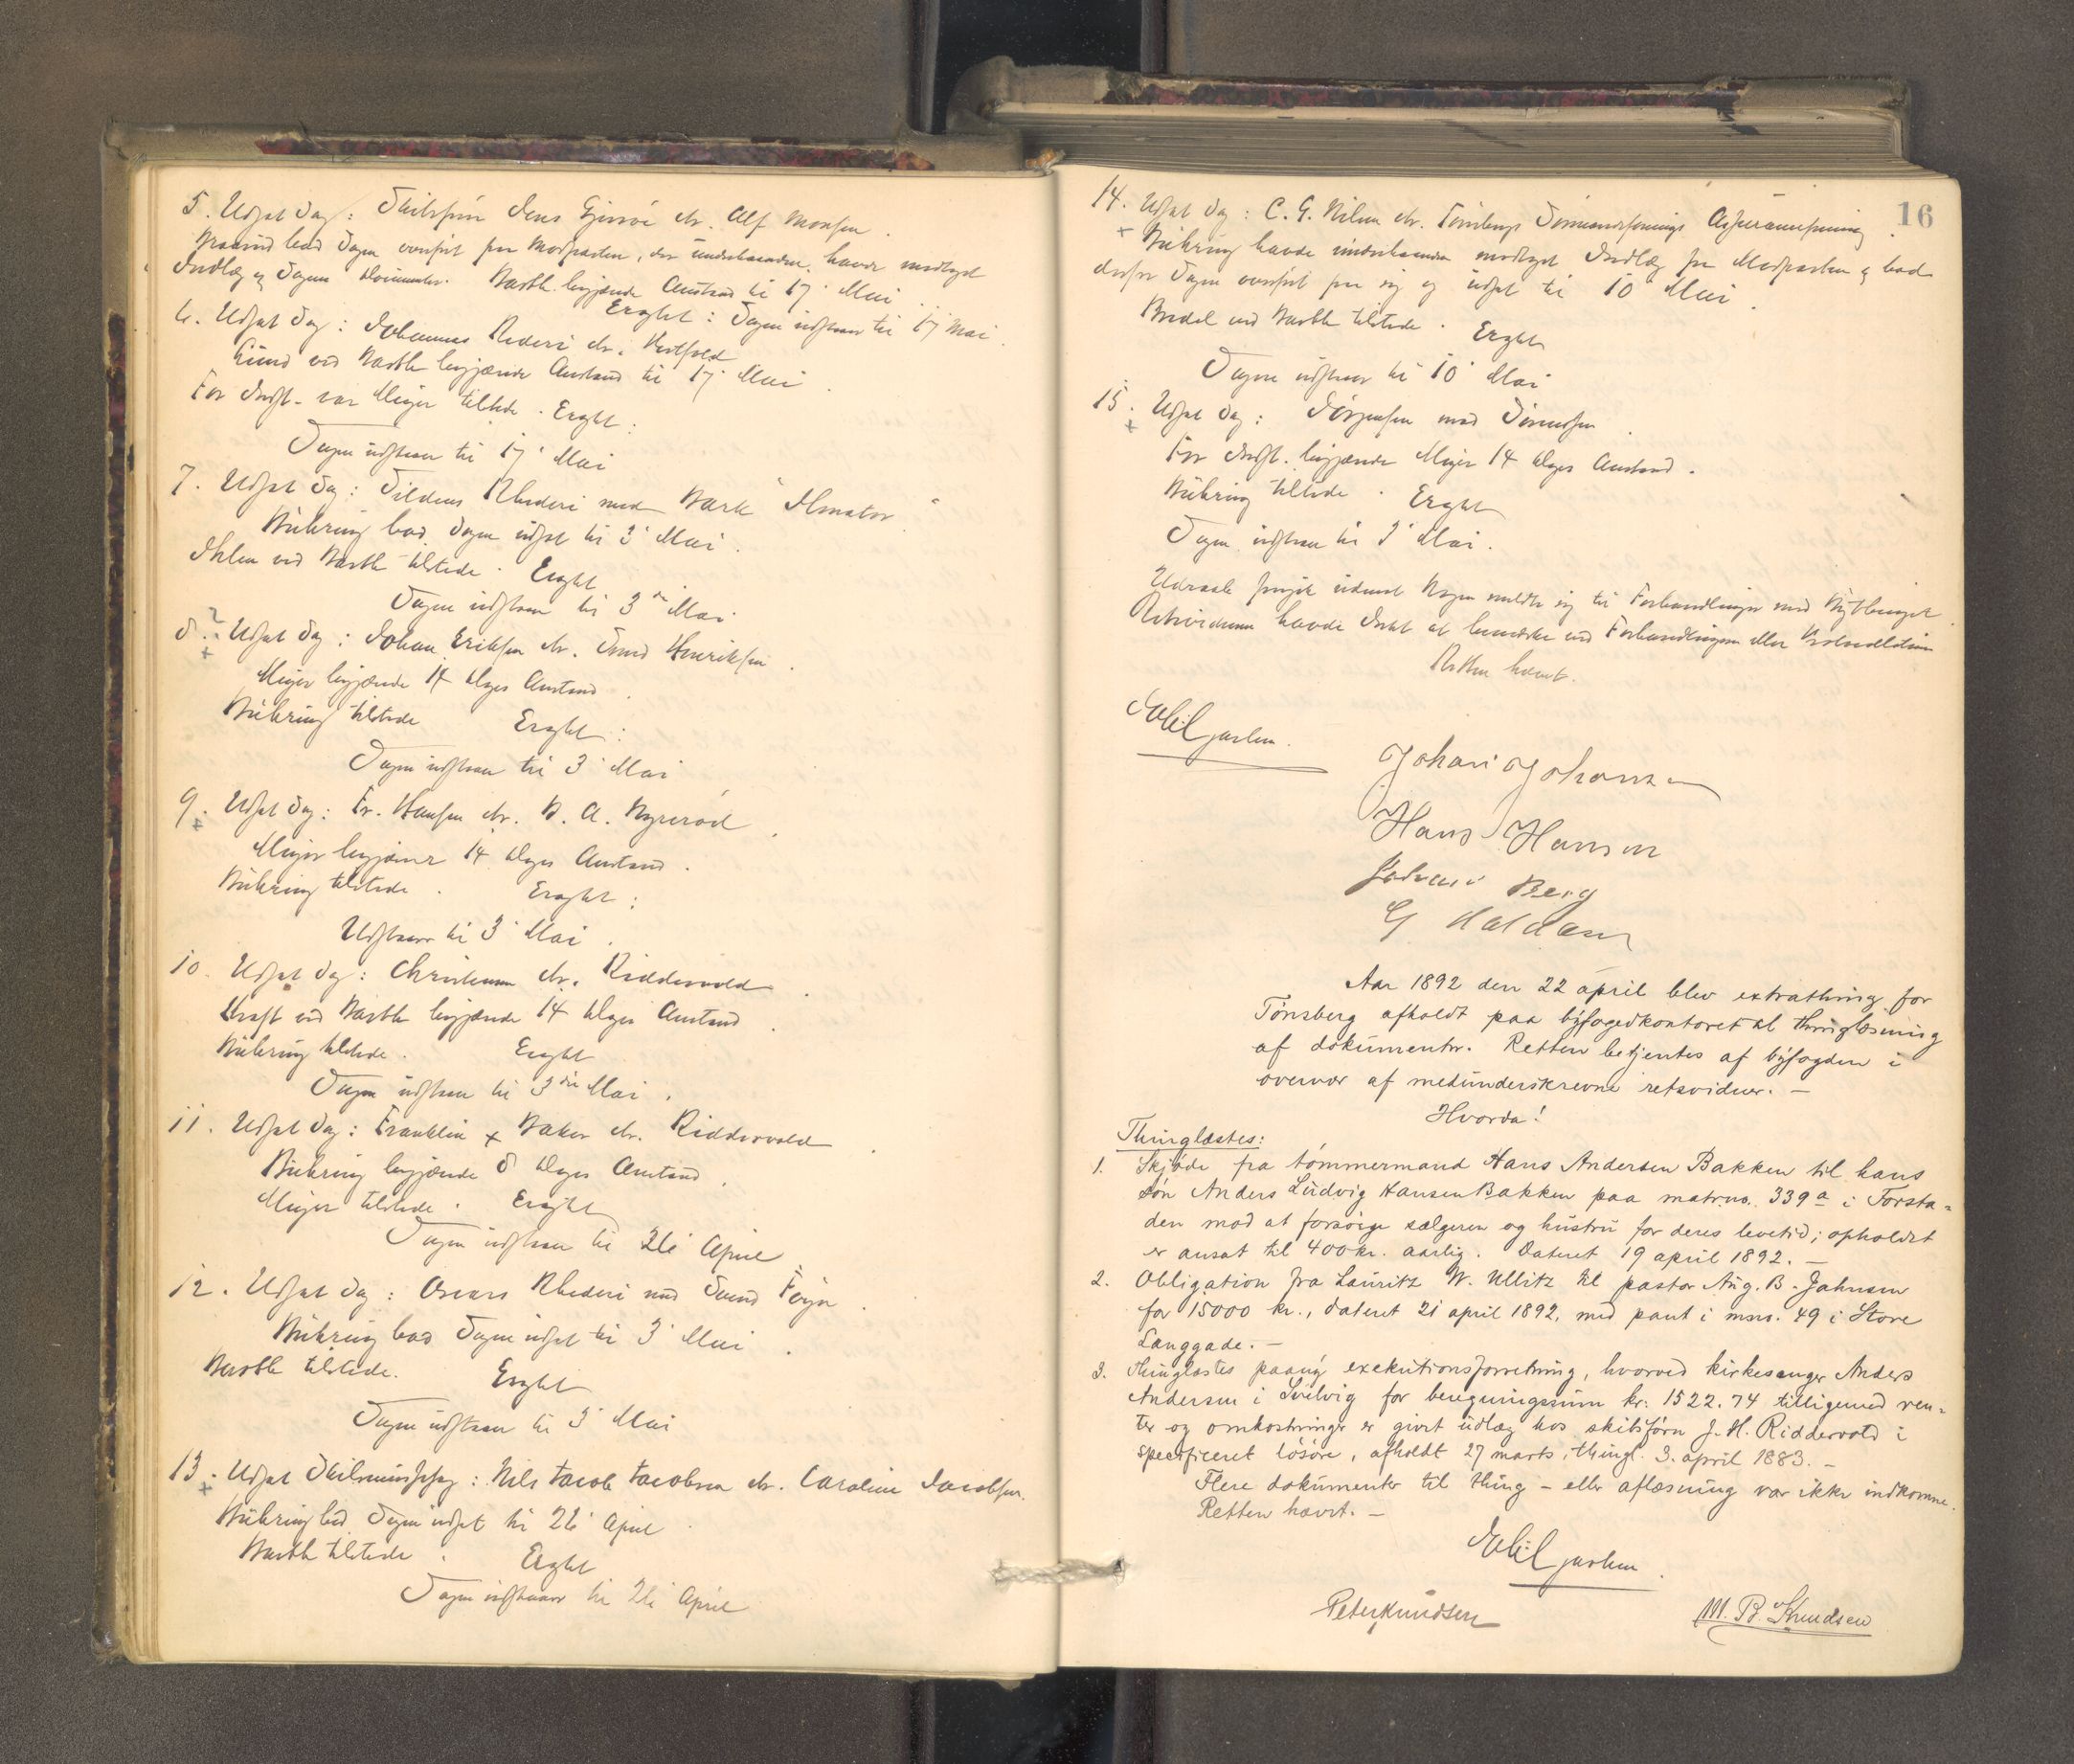 5. Udsat Sag: Skibsfører Jens Gjersøe ctr. Alf Monsen.
bad Sagen overført fra Modparten, der imidlertid havde modtaget
Indlæg og Sagens Documenter. Barth begjærede Anstand til 17' Mai.
Eragtet: Sagen udstaaer til 17 Mai.
6. Udsat Sag: Johannes Rederi ctr. Vestfold
Lund ved Barth begjærede Anstand til 17' Mai.
For Indst. var Meyer tilstede. Eragtet:
Sagen udstaaer til 17' Mai
7. Udsat Sag: Sildens Rhederi mod Bark "Ilmator."
Bühring bad Sagen udsat til 3' Mai.
Ihlen ved Barth tilstede. Eragtet
Sagen udstaaer til 3die Mai.
8. Udsat Sag: Johan Eriksen ctr. Svend Henriksen.
Meyer begjærede 14 Dages Anstand.
Bühring tilstede Eragtet:
Sagen udstaaer til 3' Mai
9. Udsat Sag: Fr. Hansen ctr. B. A. Nyrerød.
Meyer begjærer 14 Dages Anstand.
Bühring tilstede. Eragtet:
Udstaaer til 3' Mai.
10. Udsat Sag: Christensen ctr. Riddervold.
Kraft ved Barth begjærede 14 Dages Anstand.
Bühring tilstede. Eragtet
Sagen udstaaer til 3die Mai.
11. Udsat Sag: Franklin & Baker ctr. Riddervold.
Bühring begjærede 8 Dages Anstand.
Meyer tilstede. Eragtet
Sagen udstaaer til 26' April
12. Udsat Sag: Oscars Rhederi mod Svend Føyn.
Bühring bad Sagen udsat til 3' Mai.
Barth tilstede. Eragtet
Sagen udstaaer til 3' Mai
13. Udsat Skilsmissesag: Nils Jacob Jacobsen ctr. Caroline Jacobsen.
Bühring bad Sagen udsat til 26' April.
Barth tilstede. Eragtet
Sagen udstaaer til 26' April
16
14. Udsat Sag: C. G. Nilsen ctr. Tønsbergs Sømandsforenings Assuranceforening.
Bühring havde imidlertid modtaget Indlæg fra Modparten og bad
derfor Sagen overført fra sig og udsat til 10' Mai.
Bredal ved Barth tilstede. Eragtet
Sagen udstaaer til 10' Mai
15. Udsat Sag: Jörgensen mod Simonsen.
For Indst. begjærede Meyer 14 Dages Anstand.
Bühring tilstede. Eragtet
Sagen udstaaer til 3' Mai.
Udraab foregik uden at Nogen meldte sig til Forhandlinger med Bythinget.
Retsvidnerne havde Intet at bemærke ved Forhandlingen eller Protocollationen
Retten hævet.
Johan Johansen
Hans Hansen
Johan Berg
G Haldasen
Aar 1892 den 22 april blev extrathing for
Tønsberg afholdt paa byfogedkontoret til thinglæsning
af dokumenter. Retten betjentes af byfogden i
overvær af medunderskrevne retsvidner. —
Hvorda!
Thinglæstes:
1. Skjøde fra tømmermand Hans Andersen Bakken til hans
søn Anders Ludvig Hansen Bakken paa matrno. 339a i Forsta-
den mod at forsørge sælgeren og hustru for deres levetid; opholdet
er ansat til 400 kr. aarlig. Dateret 19 april 1892. —
2. Obligation fra Lauritz W. Ullitz til pastor Aug. B. Jahnsen
for 15000 kr., dateret 21 april 1892, med pant i mno. 49 i Store
Langgade. —
3. Thinglæstes paany exekutionsforretning, hvorved kirkesanger Anders
Andersen i Svelvig for beregningssum kr. 1522.74 tilligemed ren-
ter og omkostninger er givet udlæg hos skibsførn J. H. Riddervold i
specificeret løsøre, afholdt 27 marts, thingl. 3. april 1883. —
Flere dokumenter til thing- eller aflæsning var ikke indkomne.
Retten hævet. —
Peter Knudsen
M. B. Knudsen